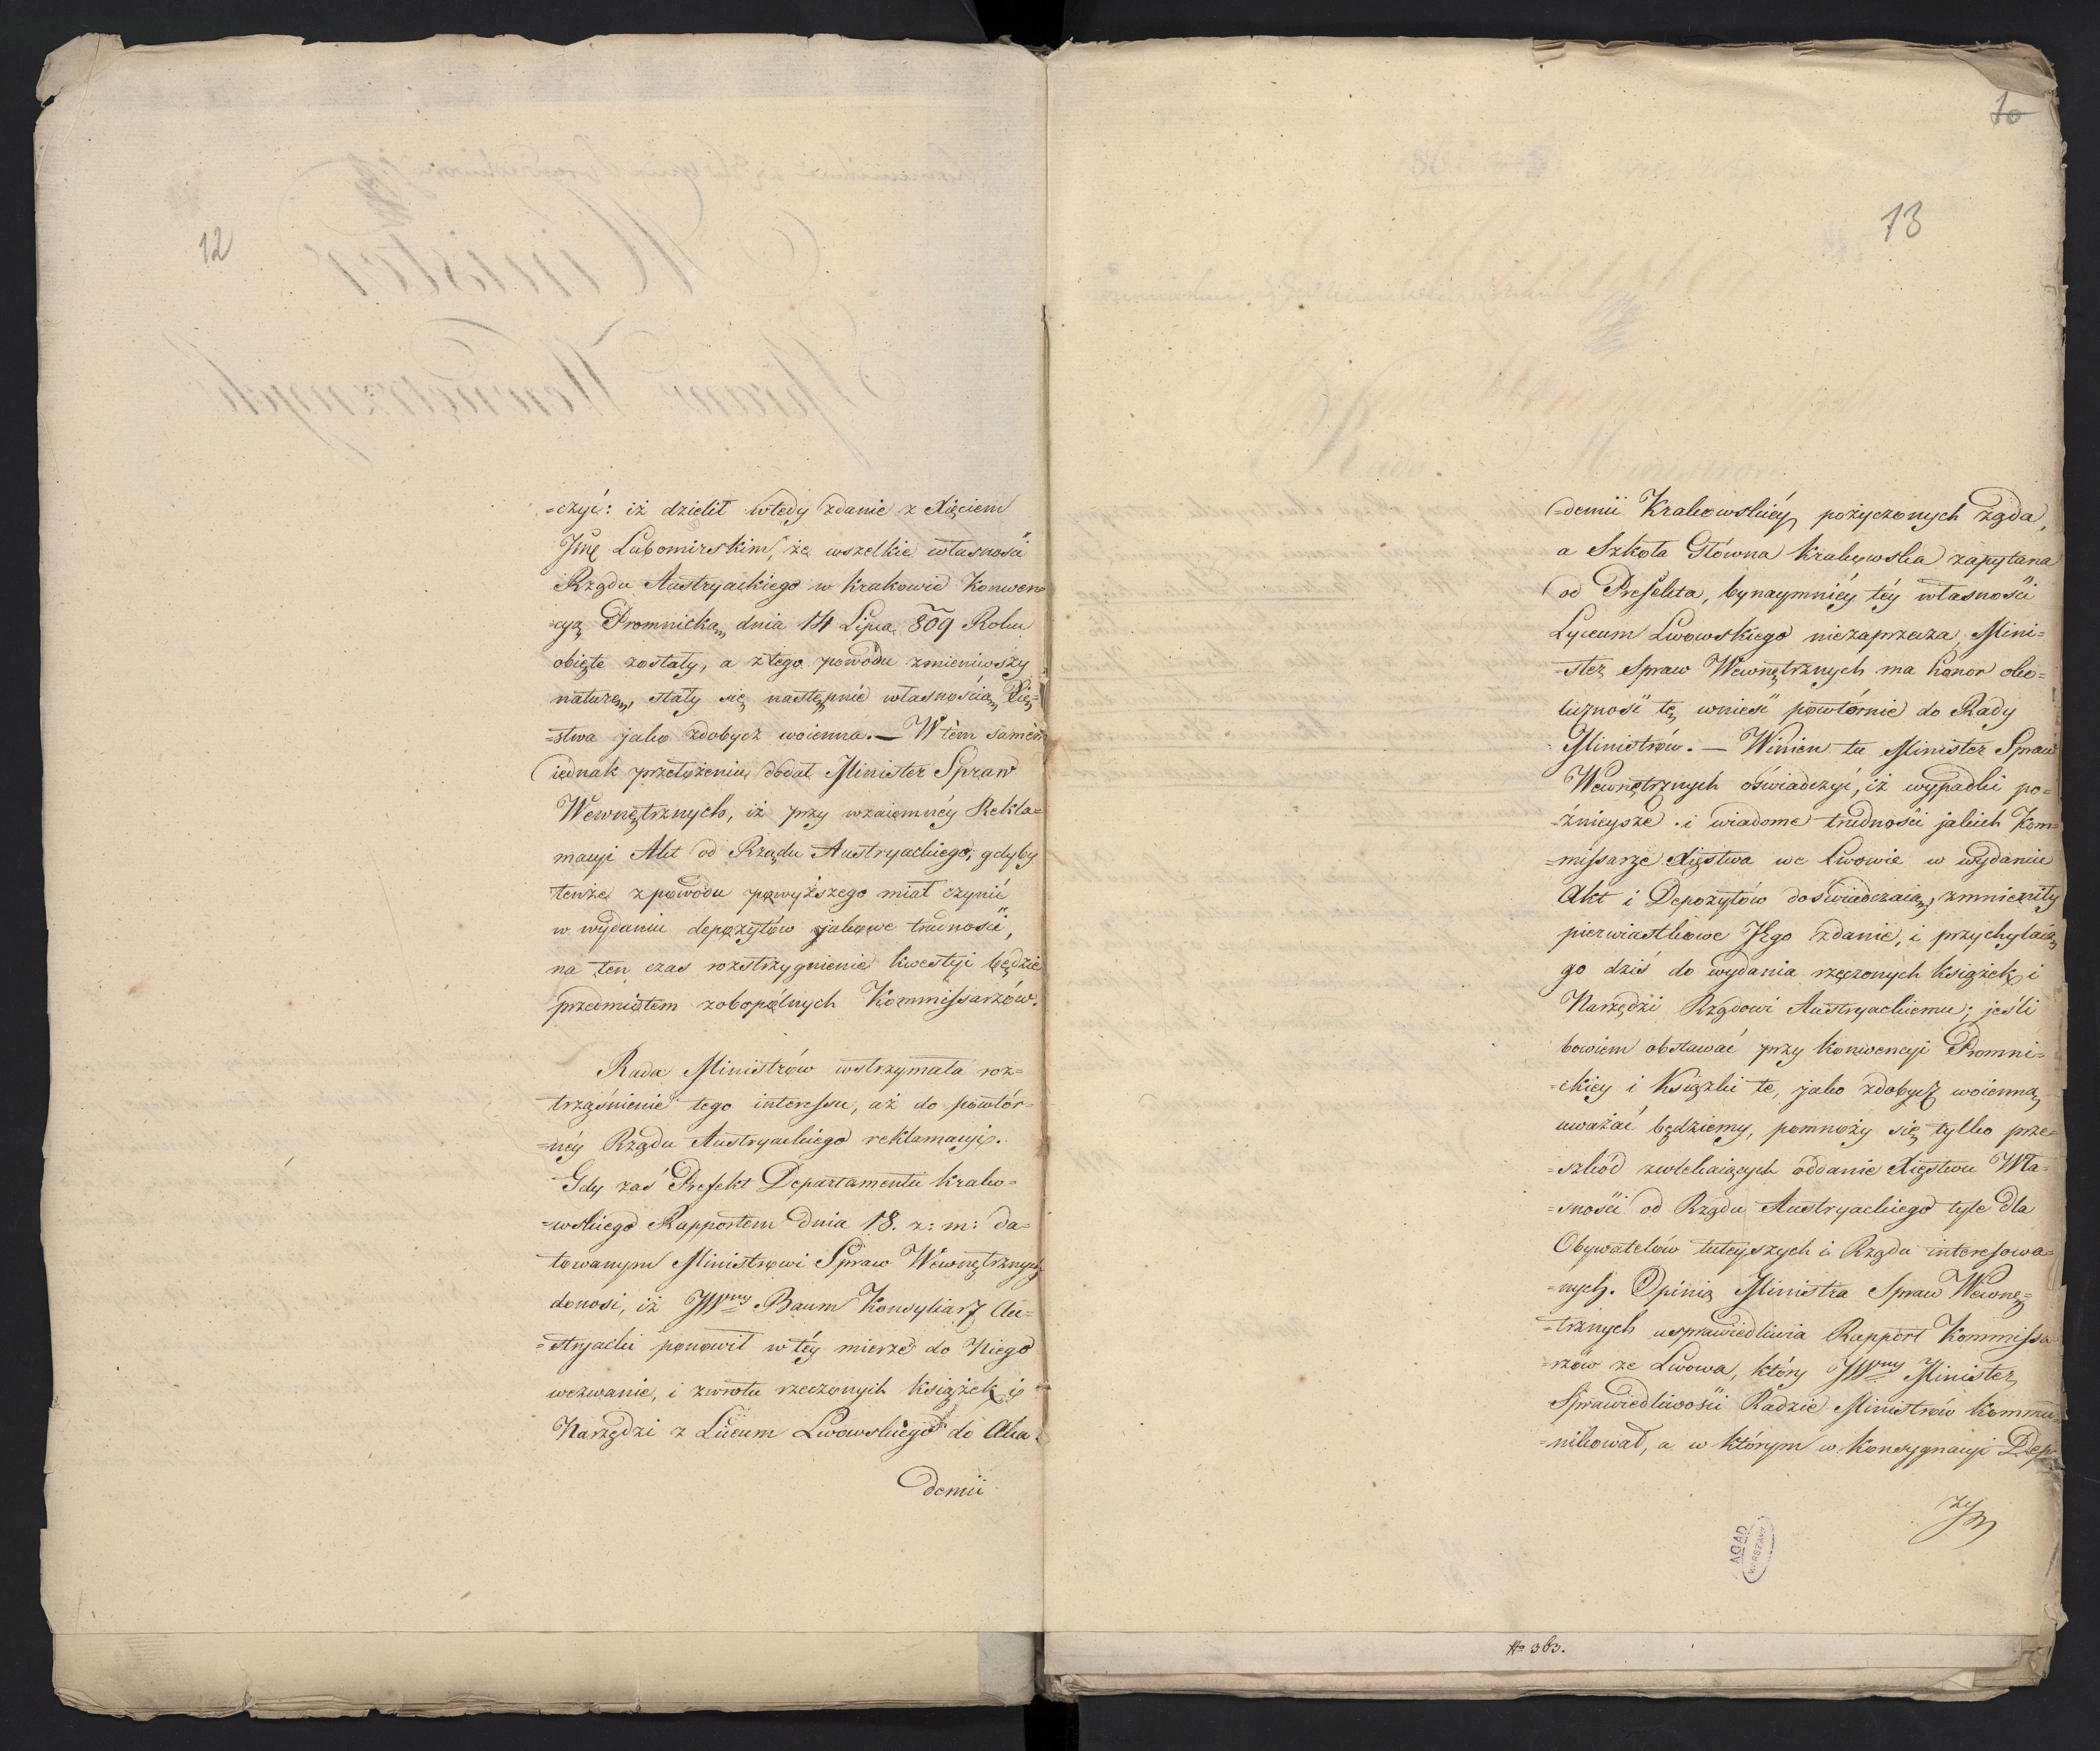 12
=czyć: iż dzielił wtedy zdanie z Xięciem
Jmę Lubomirskim, że wszelkie własności
Rządu Austryackiego w Krakowie Konwen=
=cyą Promnicką dnia 14 Lipca 809 Roku
obięte zostały, a z tego powodu zmieniwszy
naturę, stały się następnie własnością Xię=
=stwa jako zdobycz woienna. — W tém samém
iednak przełożeniu dodał Minister Spraw
Wewnętrznych, iż przy wzaiemnéy Rekla=
macyi Akt od Rządu Austryackiego, gdyby
tenże z powodu powyższego miał czynić
w wydaniu depozytów jakowe trudności,
na ten czas rozstrzygnienie kwestyi będzie
przedmiotem zobopólnych Kommissarzów.
Rada Ministrów wstrzymała roz=
trząśnienie tego interessu, aż do powtór=
=néy Rządu Austryackiego reklamacyi.
Gdy zaś Prefekt Departamentu Krako=
=wskiego Rapportem dnia 18. z: m: da=
towanym Ministrowi Spraw Wewnętrznych
donosi, iż JWny Baum Konsyliarz Au=
=stryacki ponowił w téy mierze do Niego
wezwanie, i zwrotu rzeczonych książek i
Narzędzi z Liceum Lwowskiego do Aka=
demii
10
13
=demii Krakowskiéy pożyczonych żąda,
a Szkoła Główna Krakowska zapytana
od Prefekta, bynaymniéy téy własności
Lyceum Lwowskiego niezaprzecza, Mini=
=ster Spraw Wewnętrznych ma honor oko=
liczność tę wnieść powtórnie do Rady
Ministrów. — Winien tu Minister Spraw
Wewnętrznych oświadczyć, iż wypadki po=
=źnieysze i wiadome trudności jakich Kom=
=missarze Xięstwa we Lwowie w wydaniu
Akt i Depozytów doświadczaią, zmnieniły
pierwiastkowe Jego zdanie, i przychylaią
go dziś do wydania rzeczonych książek i
Narzędzi Rządowi Austryackiemu; jeśli
bowiem obstawać przy konwencyi Promni=
=ckiey i Książki te, jako zdobycz woienną
uważać będziemy, pomnoży się tylko prze=
=szkód zwlekaiących oddanie Xięstwu Wła=
=sności od Rządu Austryackiego tyle dla
Obywatelów tuteyszych i Rządu interesowa=
=nych. Opinią Ministra Spraw Wewnę=
=trznych usprawiedliwia Rapport Kommissa
=rzów ze Lwowa, który JWny Minister
Sprawiedliwości Radzie Ministrów Kommu=
=nikował, a w którym w Konsygnacyi Depo
AGAD
WARSZAWA
No 363.